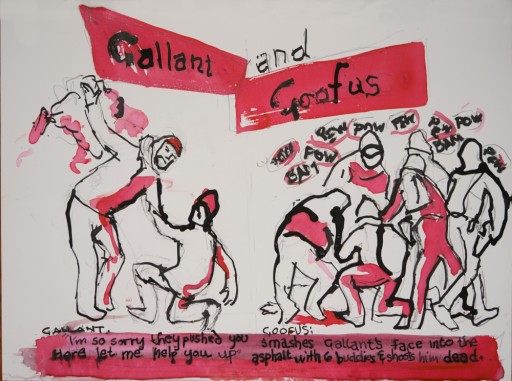 Gallant and
Goofus
POW
POW
BAM
PEW
POW
PEW
PEW
BAM
POW
PEW
GALLANT:
"I'm so sorry they pushed you
Here let me help you up"
GOOFUS:
Smashes Gallant's face into the
asphalt with 6 buddies & shoots him dead.